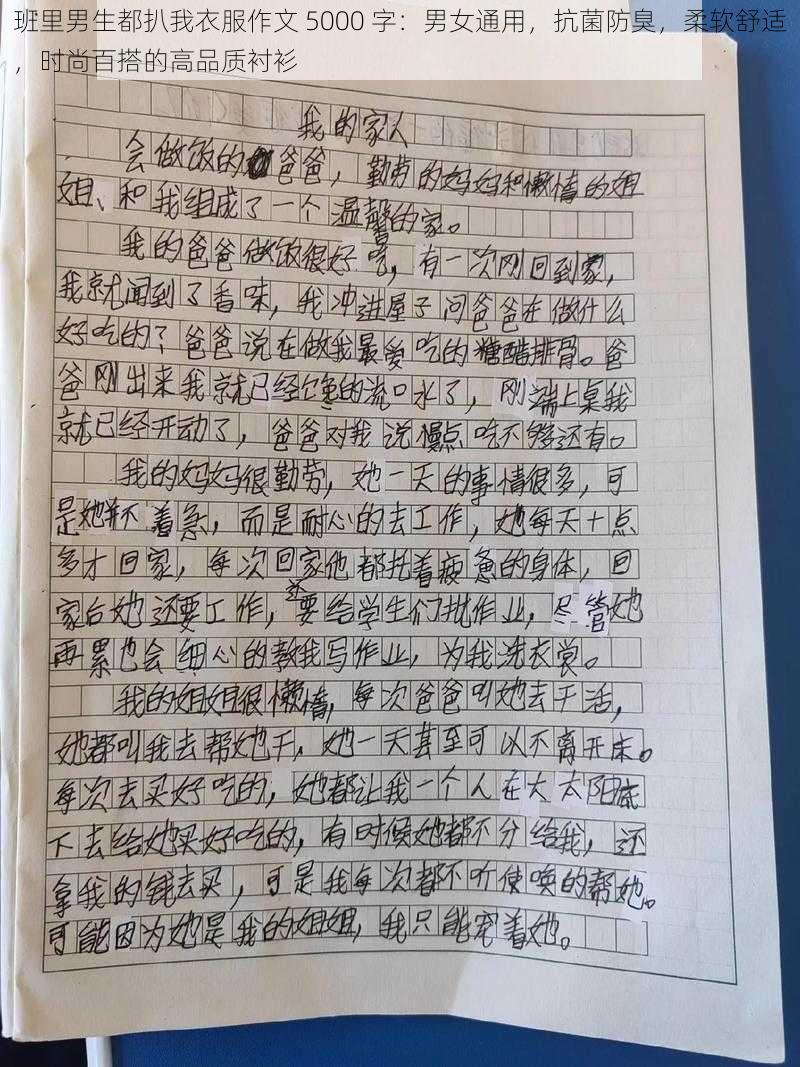 班里男生都扒我衣服作文 5000 字：男女通用，抗菌防臭，柔软舒适
，时尚百搭的高品质衬衫
我的家人
会做饭的爸爸，勤劳的妈妈和懒惰的姐
姐、和我组成了一个温馨的家。
我的爸爸做饭很好吃，有一次刚回到家，
我就闻到了香味，我冲进屋子问爸爸在做什么
好吃的？爸爸说在做我最爱吃的糖醋排骨。爸
爸刚出来我就已经馋的流口水了，刚端上桌我
就已经开动了，爸爸对我说慢点吃不够还有。
我的妈妈很勤劳，她一天的事情很多，可
是她并不着急，而是耐心的去工作，她每天十点
多才回家，每次回家他都托着疲惫的身体，回
家后她还要工作，还要给学生们批作业，尽管她
再累也会细心的教我写作业，为我洗衣裳。
我的姐姐很懒惰，每次爸爸叫她去干活，
她都叫我去帮她干，她一天甚至可以不离开床。
每次去买好吃的，她都让我一个人在大太阳底
下去给她买好吃的，有时候她都不分给我，还
拿我的钱去买，可是我每次都不听使唤的帮她。
可能因为她是我的姐姐，我只能宠着她。